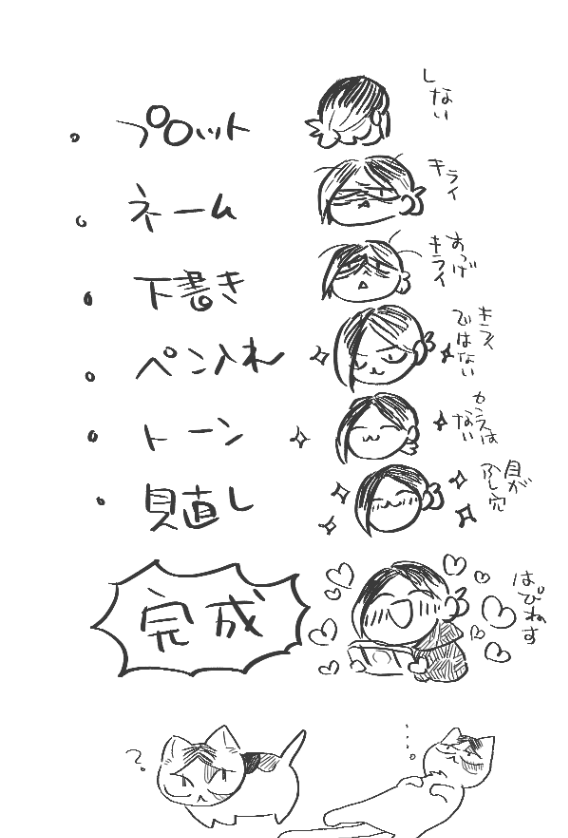 プロット
しない
ネーム
キライ
下書き
すっげ
キライ
ペン入れ
キライ
ではない
トーン
ない
見直し
目が
ふし穴
完成
はぴねす
?